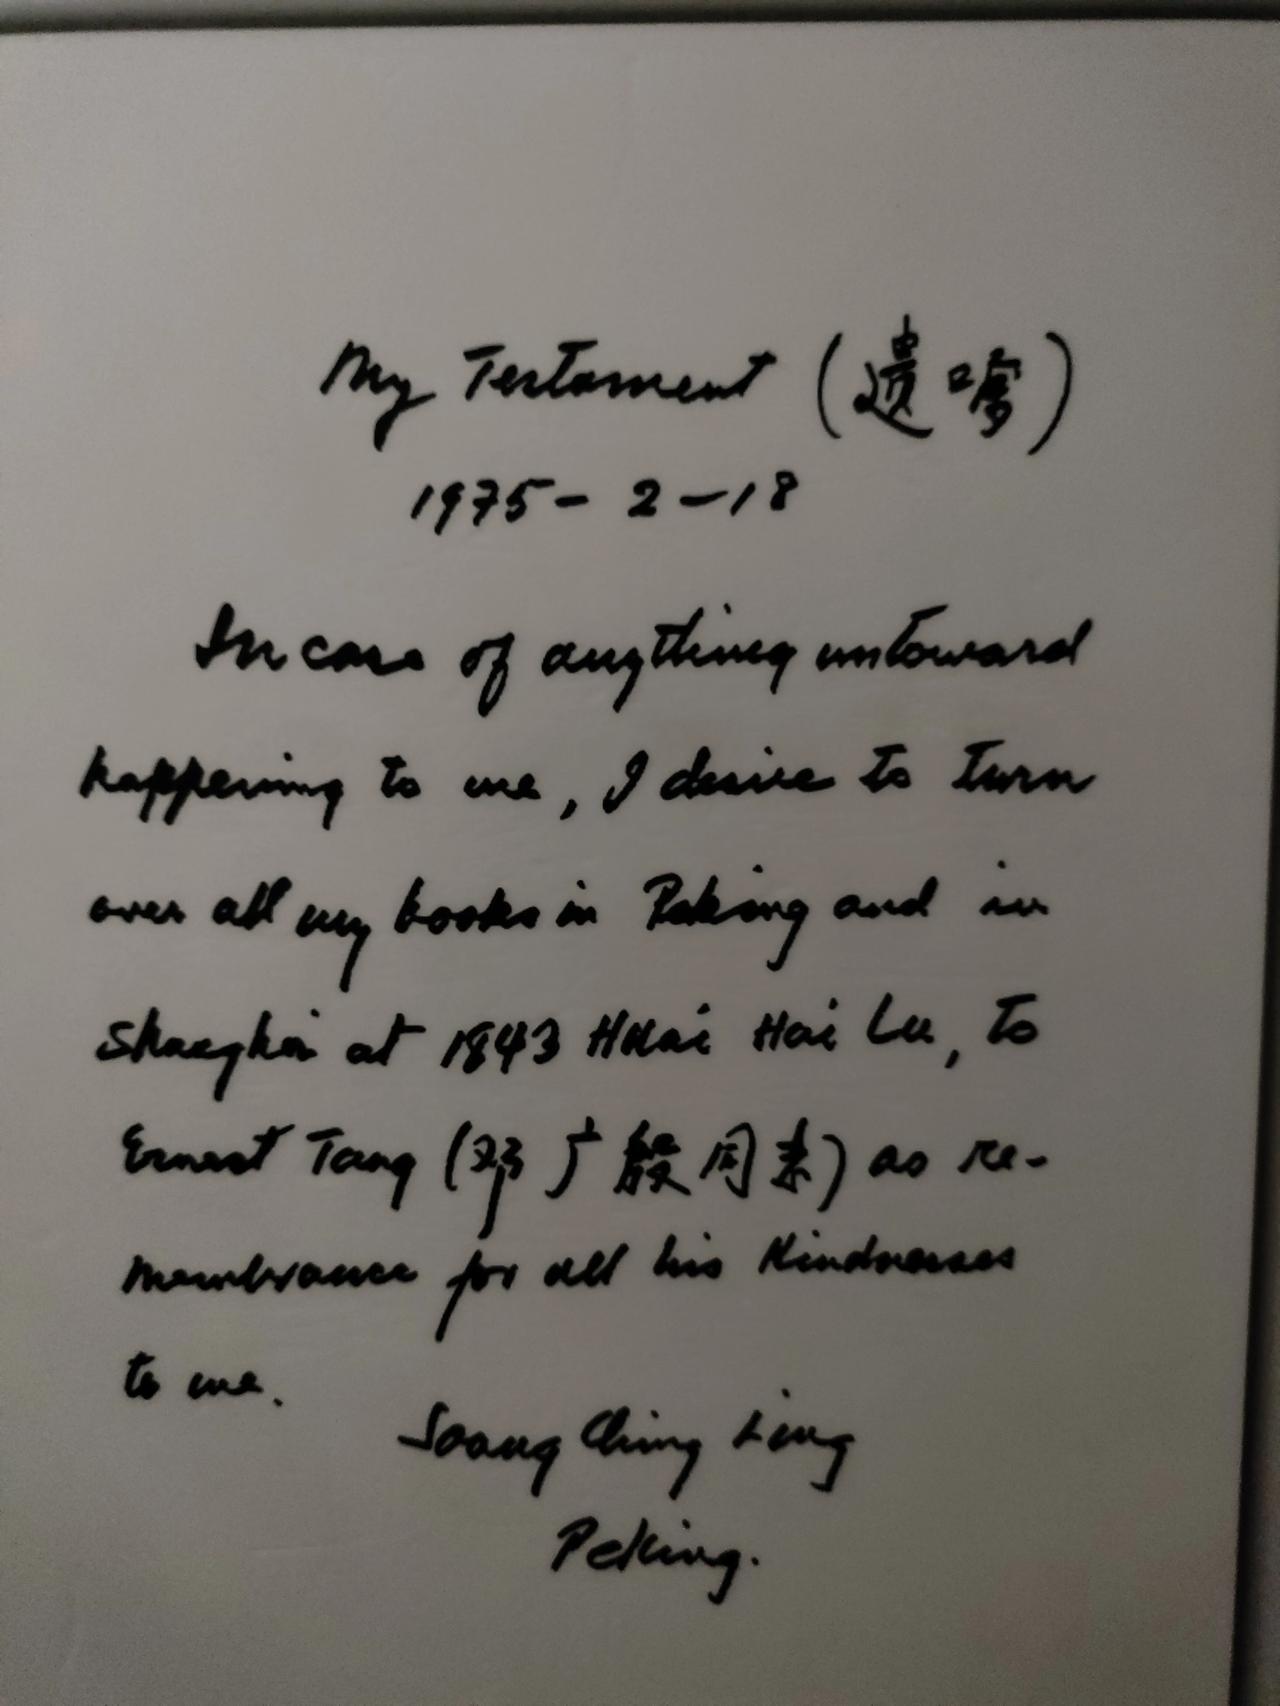 My Testament (遗嘱)
1975 - 2 - 18
In case of anything untoward
happening to me, I desire to turn
over all my books in Peking and in
Shanghai at 1843 Huai Hai Lu, to
Ernest Tang (邓广殷同志) as re-
membrance for all his kindnesses
to me.
Soong Ching Ling
Peking.